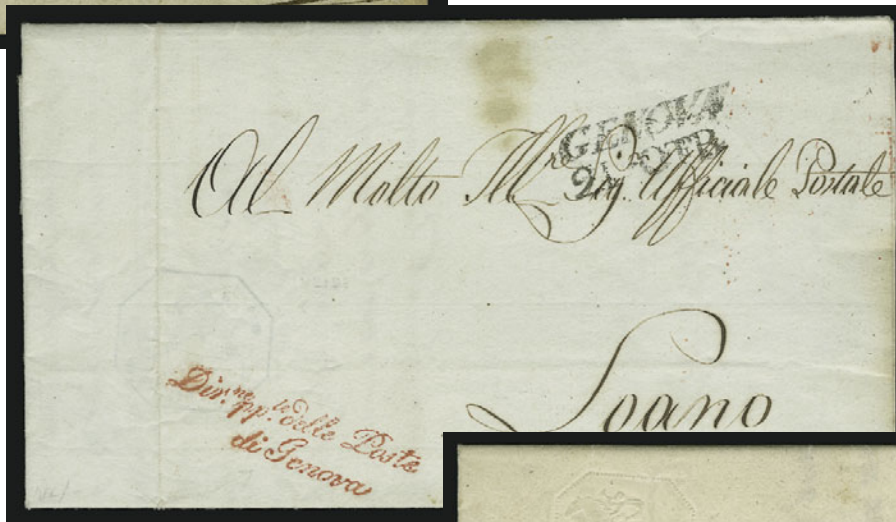 GENOVA
Al Molto Ill.re Sig. Ufficiale Postale
Loano
Dir.ne pp.le delle Poste
di Genova